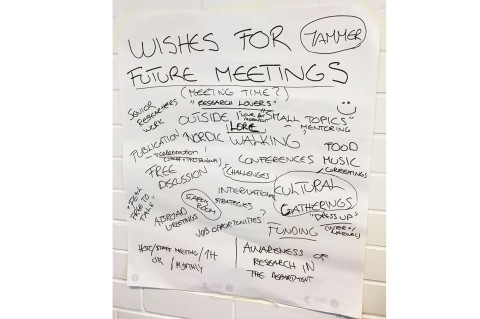 WISHES FOR
YAMMER
FUTURE MEETINGS
(MEETING TIME?)
SENIOR RESEARCHERS WORK
"RESEARCH LOVERS"
OUTSIDE
"SMALL TOPICS"
LORE
MENTORING
PUBLICATION
NORDIC WALKING
FOOD
CONFERENCES
MUSIC
CHALLENGES
GREETINGS
FREE DISCUSSION
INTERNATIONAL
CULTURAL GATHERINGS
"FEEL FREE TO TALK"
STRATEGIES
"DRESS UP"
ABROAD GREETINGS
JOB OPPORTUNITIES?
FUNDING
STAFF MEETING/1H
OK / MONTHLY
AWARENESS OF
RESEARCH IN
THE DEPARTMENT